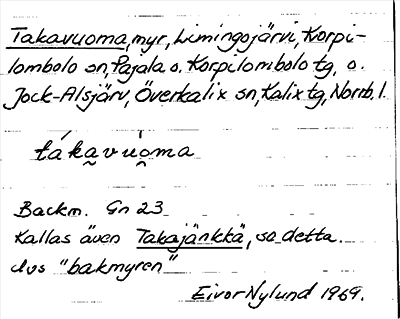 Takavuoma, myr, Limingojärvi, Korpi-
lombolo sn, Pajala o. Korpilombolo tg, o.
Jock-Alsjärv, Överkalix sn, Kalix tg, Norrb. l.
tákavuòma
Backm. Gn 23
Kallas även Takajänkkä, so detta.
dvs "bakmyren"
Eivor Nylund 1969.